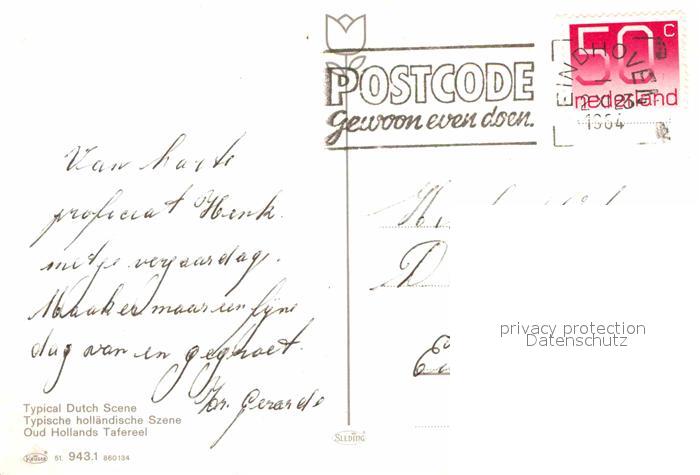 POSTCODE
gewoon even doen.
50 c
nederland
EINDHOVEN
1984
Van harte
proficiat Henk.
metje verjaardag.
Maak er maar een fijne
dag van en gegroet.
Br. Gerardo
privacy protection
Datenschutz
SLEDING
Typical Dutch Scene
Typische holländische Szene
Oud Hollands Tafereel
51. 943.1 860134